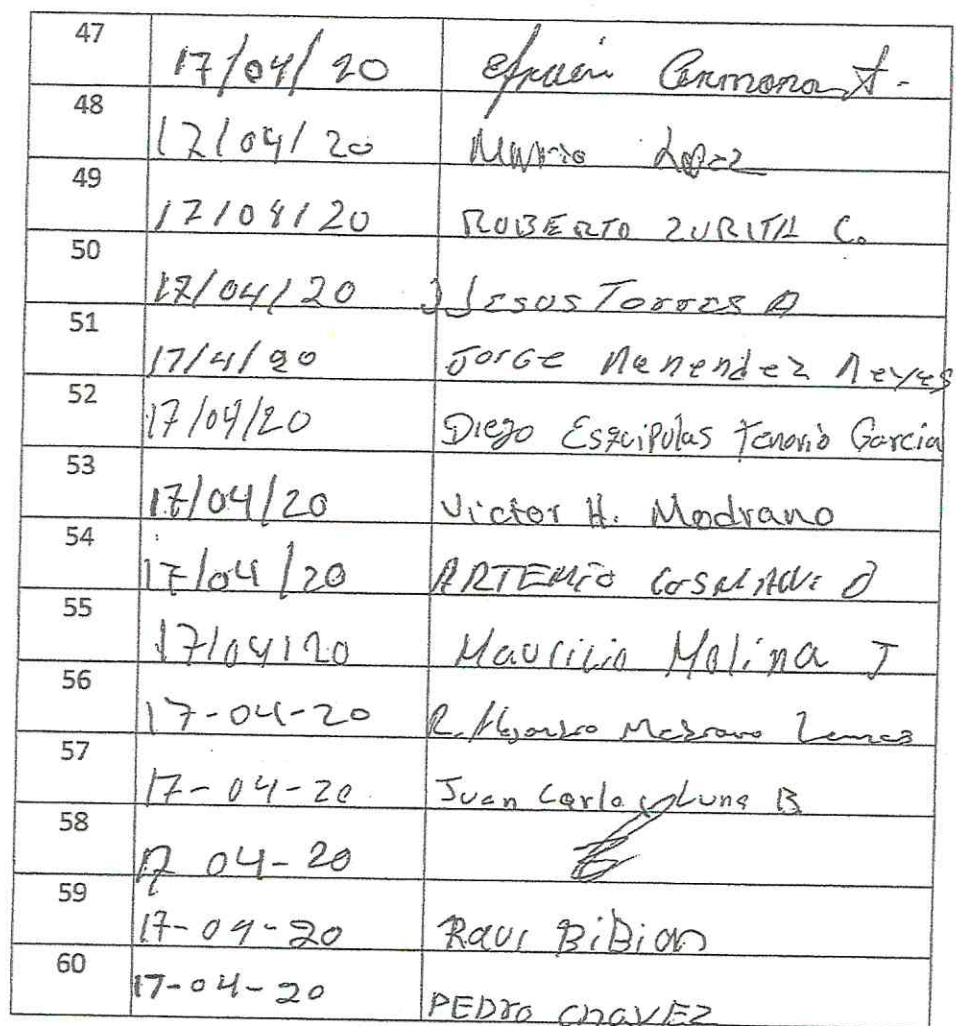 47 17/04/20 Efraín Carmona A-
48 17/04/20 Mario Lopez
49 17/04/20 ROBERTO ZURITA C.
50 17/04/20 J Jesus Torres A
51 17/4/20 Jorge Menendez Reyes
52 17/04/20 Diego Esquipulas Tenorio Garcia
53 17/04/20 Victor H. Medrano
54 17/04/20 ARTEMIO
55 17/04/20 Mauricio Molina J
56 17-04-20 R. Alfonso Medrano Lemus
57 17-04-20 Juan Carlos Luna B
58 17 04-20
59 17-04-20 Raul BiBian
60 17-04-20 PEDro chavEZ